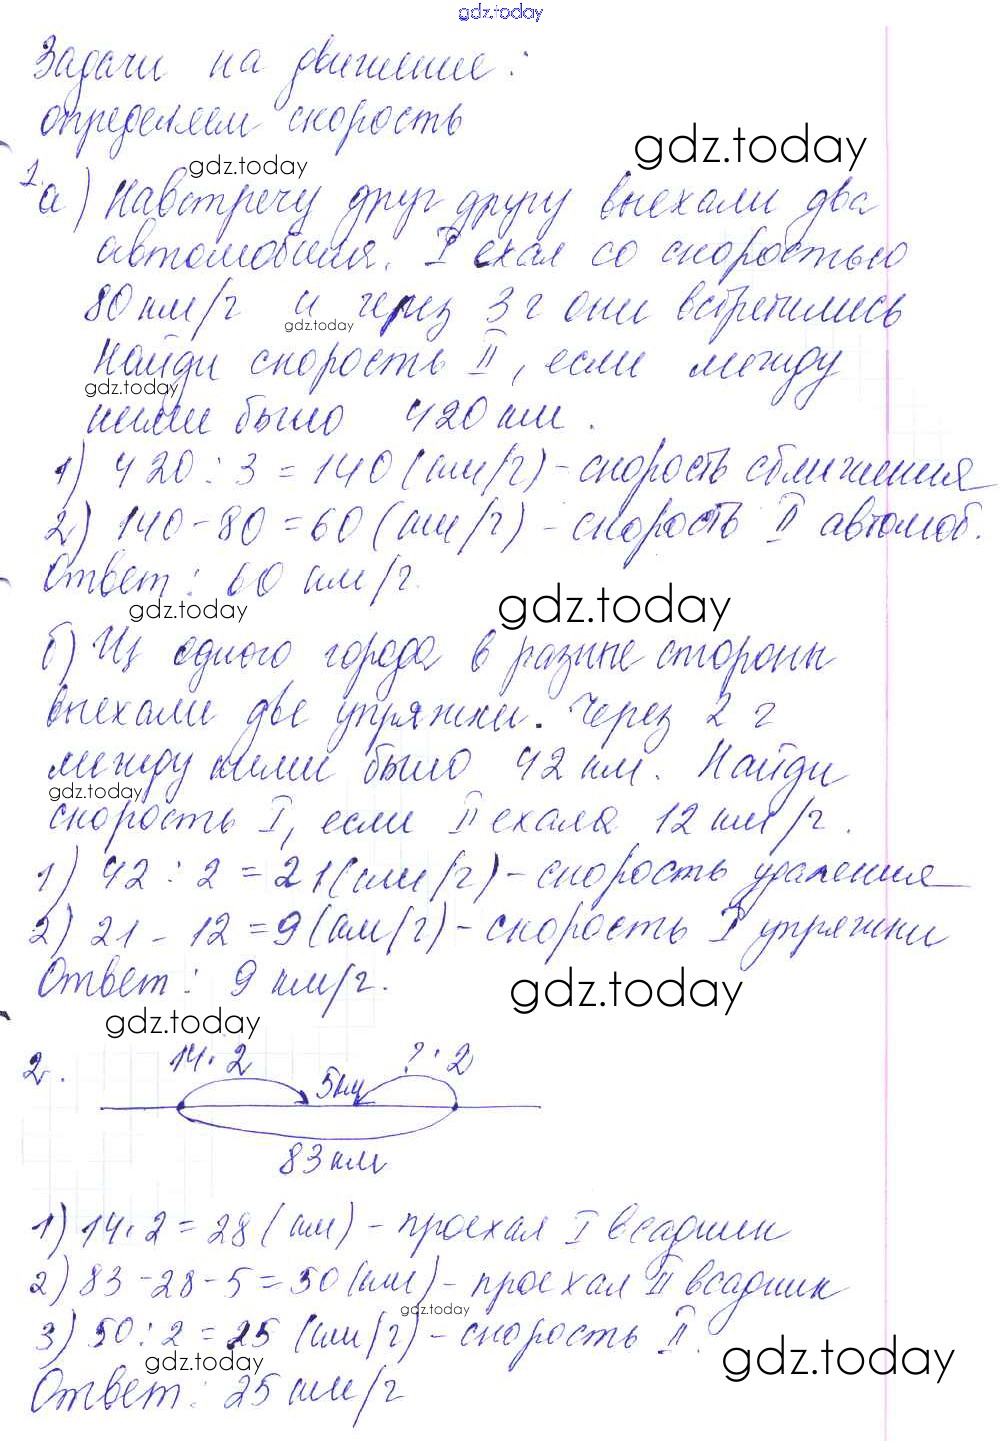 gdz.today
Задачи на движение:
определяем скорость
gdz.today
gdz.today
1.
а) Навстречу друг другу выехали два
автомобиля. I ехал со скоростью
80 км/ч и через 3 ч они встретились
gdz.today
Найди скорость II, если между
gdz.today
ними было 420 км.
1) 420 : 3 = 140 (км/ч) - скорость сближения
2) 140 - 80 = 60 (км/ч) - скорость II автомоб.
Ответ: 60 км/ч.
gdz.today
gdz.today
б) Из одного города в разные стороны
выехали две упряжки. Через 2 ч
между ними было 42 км. Найди
gdz.today
скорость I, если II ехала 12 км/ч.
1) 42 : 2 = 21 (км/ч) - скорость удаления
2) 21 - 12 = 9 (км/ч) - скорость I упряжки
Ответ: 9 км/ч.
gdz.today
gdz.today
2. 14 · 2 ? · 2
5 км
83 км
1) 14 · 2 = 28 (км) - проехал I всадник
2) 83 - 28 - 5 = 50 (км) - проехал II всадник
gdz.today
3) 50 : 2 = 25 (км/ч) - скорость II.
gdz.today
gdz.today
Ответ: 25 км/ч